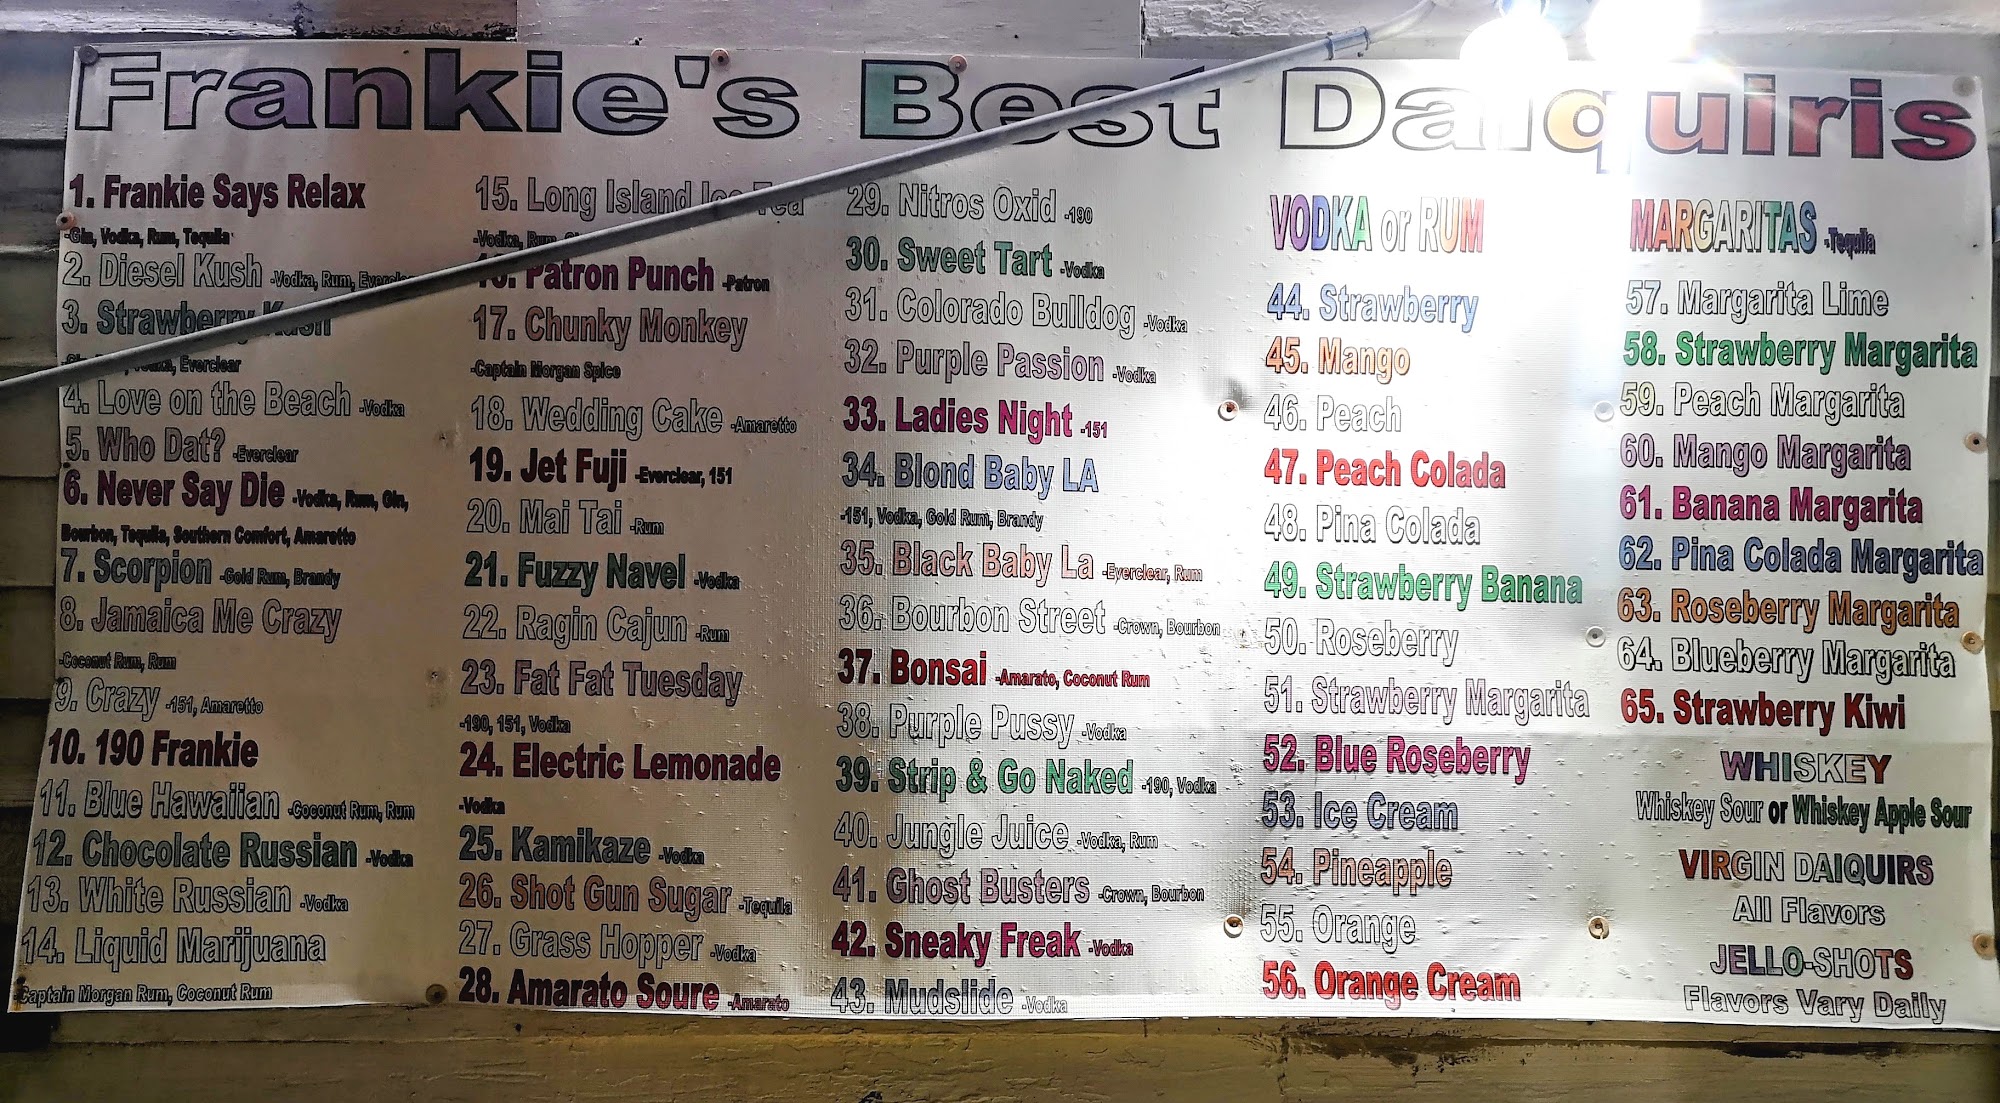 Frankie's Best Daiquiris
1. Frankie Says Relax
-Gin, Vodka, Rum, Tequila
2. Diesel Kush -Vodka, Rum, Everclear
3. Strawberry Kush
Vodka, Everclear
4. Love on the Beach -Vodka
5. Who Dat? -Everclear
6. Never Say Die -Vodka, Rum, Gin,
Bourbon, Tequila, Southern Comfort, Amaretto
7. Scorpion -Gold Rum, Brandy
8. Jamaica Me Crazy
-Coconut Rum, Rum
9. Crazy -151, Amaretto
10. 190 Frankie
11. Blue Hawaiian -Coconut Rum, Rum
12. Chocolate Russian -Vodka
13. White Russian -Vodka
14. Liquid Marijuana
-Captain Morgan Rum, Coconut Rum
15. Long Island Ice Tea
-Vodka, Rum,
16. Patron Punch -Patron
17. Chunky Monkey
-Captain Morgan Spice
18. Wedding Cake -Amaretto
19. Jet Fuji -Everclear, 151
20. Mai Tai -Rum
21. Fuzzy Navel -Vodka
22. Ragin Cajun -Rum
23. Fat Fat Tuesday
-190, 151, Vodka
24. Electric Lemonade
-Vodka
25. Kamikaze -Vodka
26. Shot Gun Sugar -Tequila
27. Grass Hopper -Vodka
28. Amarato Soure -Amarato
29. Nitros Oxid -190
30. Sweet Tart -Vodka
31. Colorado Bulldog -Vodka
32. Purple Passion -Vodka
33. Ladies Night -151
34. Blond Baby LA
-151, Vodka, Gold Rum, Brandy
35. Black Baby La -Everclear, Rum
36. Bourbon Street -Crown, Bourbon
37. Bonsai -Amarato, Coconut Rum
38. Purple Pussy -Vodka
39. Strip & Go Naked -190, Vodka
40. Jungle Juice -Vodka, Rum
41. Ghost Busters -Crown, Bourbon
42. Sneaky Freak -Vodka
43. Mudslide -Vodka
VODKA or RUM
44. Strawberry
45. Mango
46. Peach
47. Peach Colada
48. Pina Colada
49. Strawberry Banana
50. Roseberry
51. Strawberry Margarita
52. Blue Roseberry
53. Ice Cream
54. Pineapple
55. Orange
56. Orange Cream
MARGARITAS -Tequila
57. Margarita Lime
58. Strawberry Margarita
59. Peach Margarita
60. Mango Margarita
61. Banana Margarita
62. Pina Colada Margarita
63. Roseberry Margarita
64. Blueberry Margarita
65. Strawberry Kiwi
WHISKEY
Whiskey Sour or Whiskey Apple Sour
VIRGIN DAIQUIRS
All Flavors
JELLO-SHOTS
Flavors Vary Daily